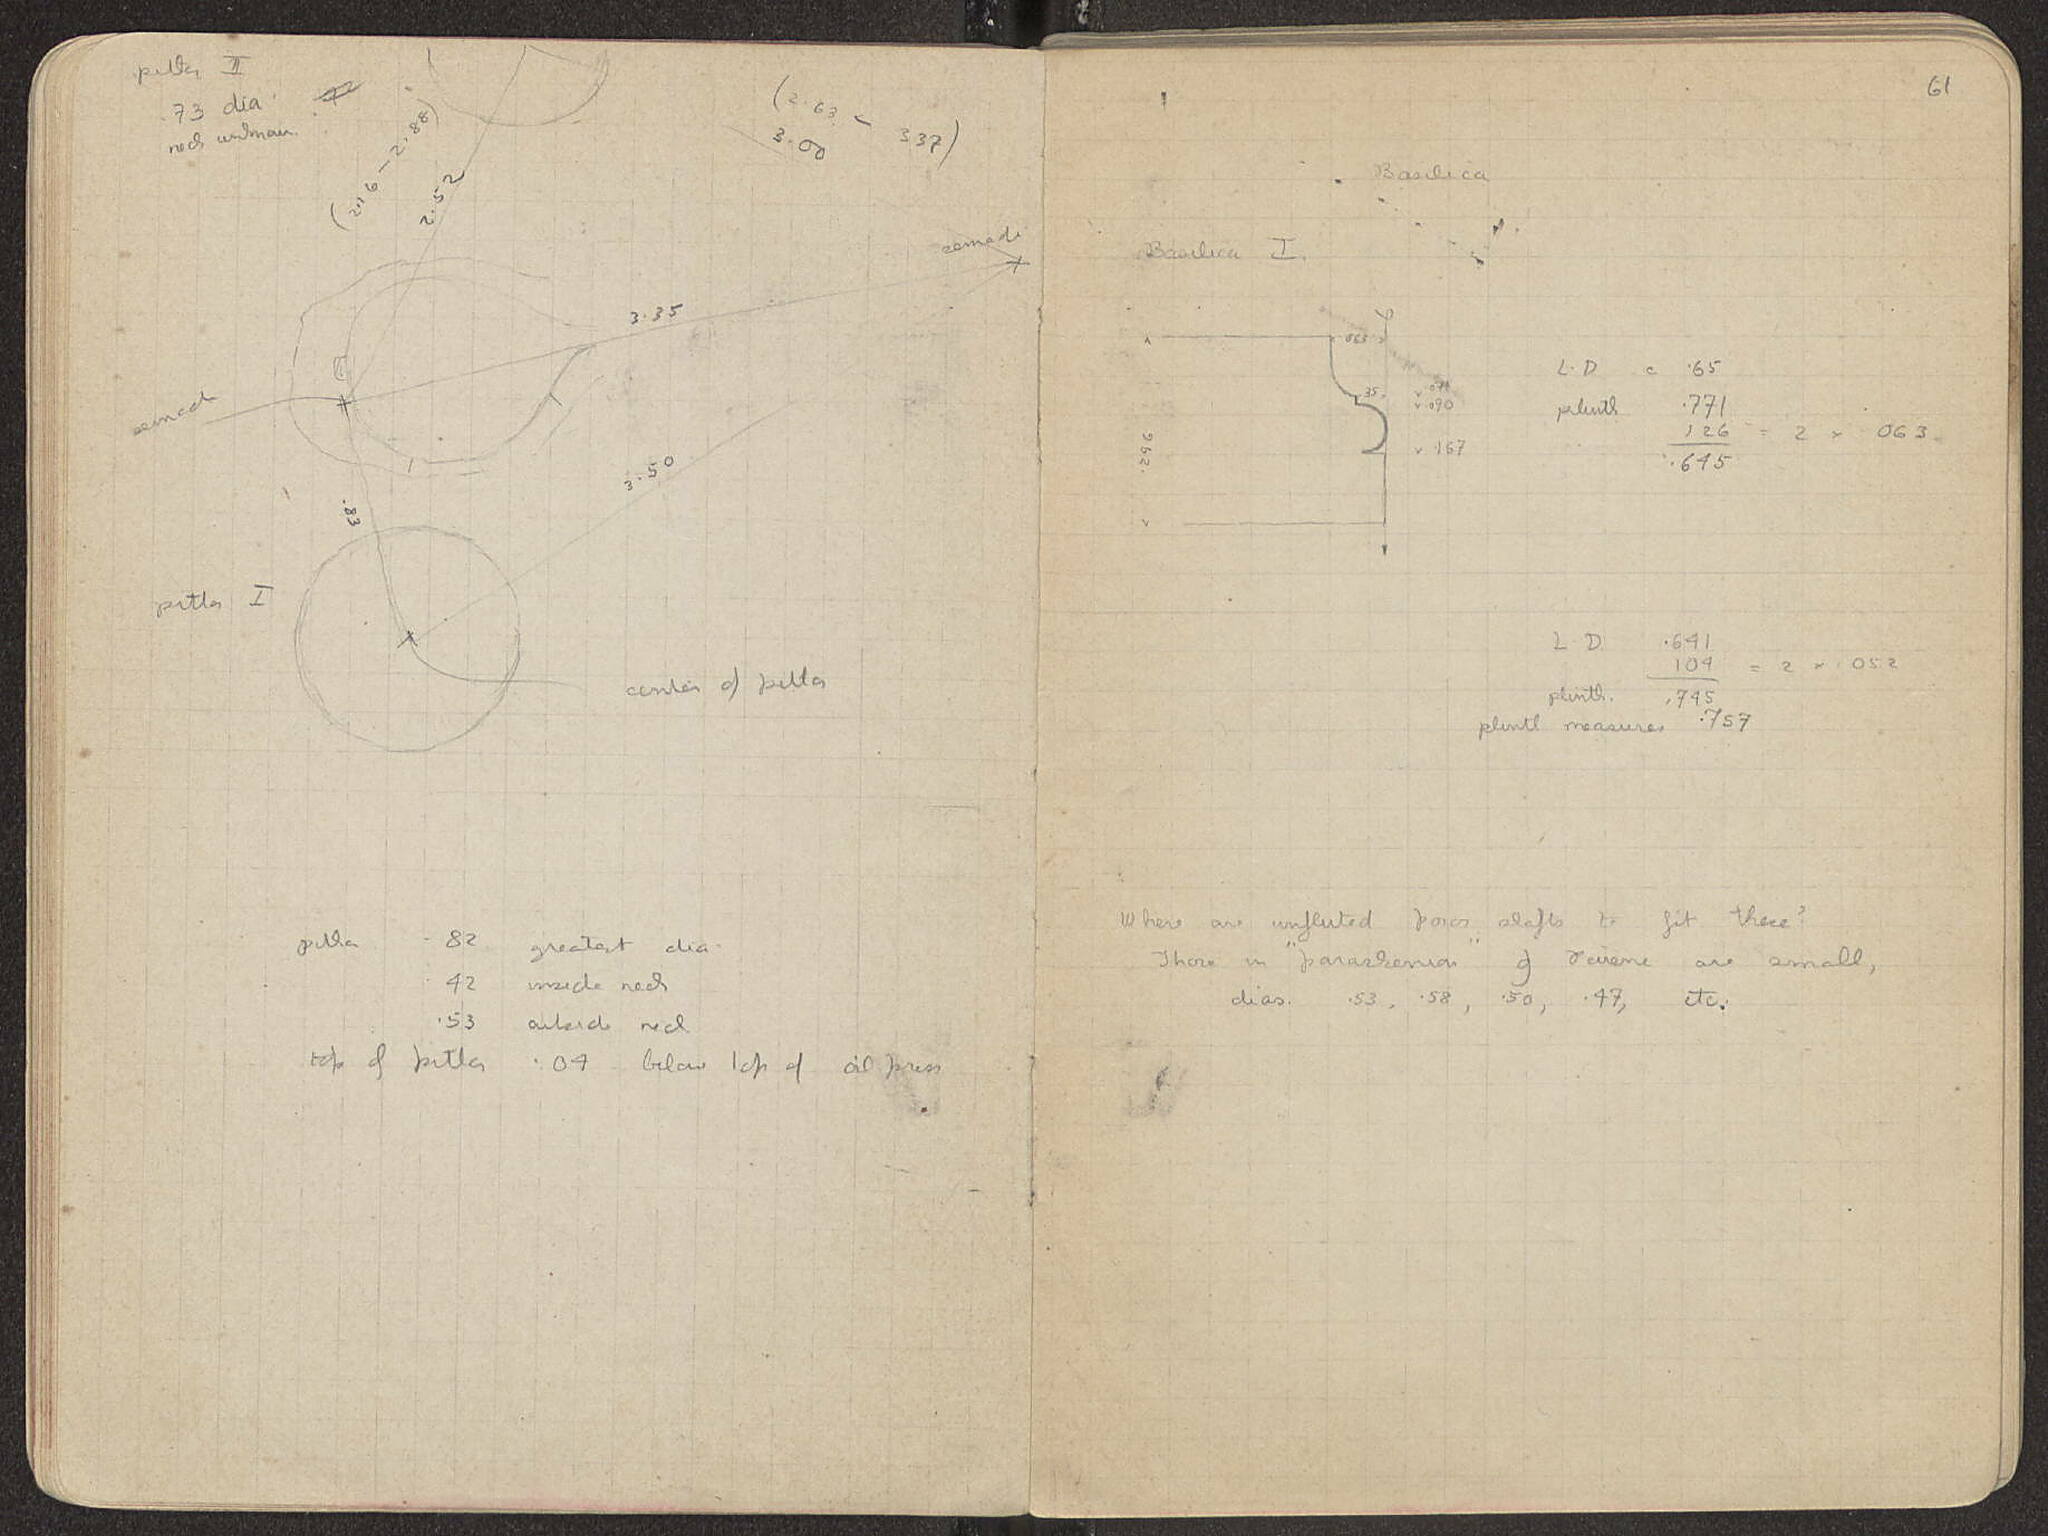 pithos II
.73 dia.
neck unknown
(2.16 - 2.88)
2.52
(2.63 - 3.37)
3.00
3.35
.83
3.50
pithos I
center of pithos
pithos .82 greatest dia.
.42 inside neck
.53 outside neck
top of pithos .04 below top of oil press
61
Basilica
Basilica I.
.063
.35
.090
.167
.252
L.D = .65
plinth .771
126 = 2 × .063
.645
L.D. .641
104 = 2 × .052
plinth. .745
plinth measures .757
Where are unfluted poros shafts to fit these?
Those in "paraskenia" of are small,
dias. .53, .58, .50, .47, etc.